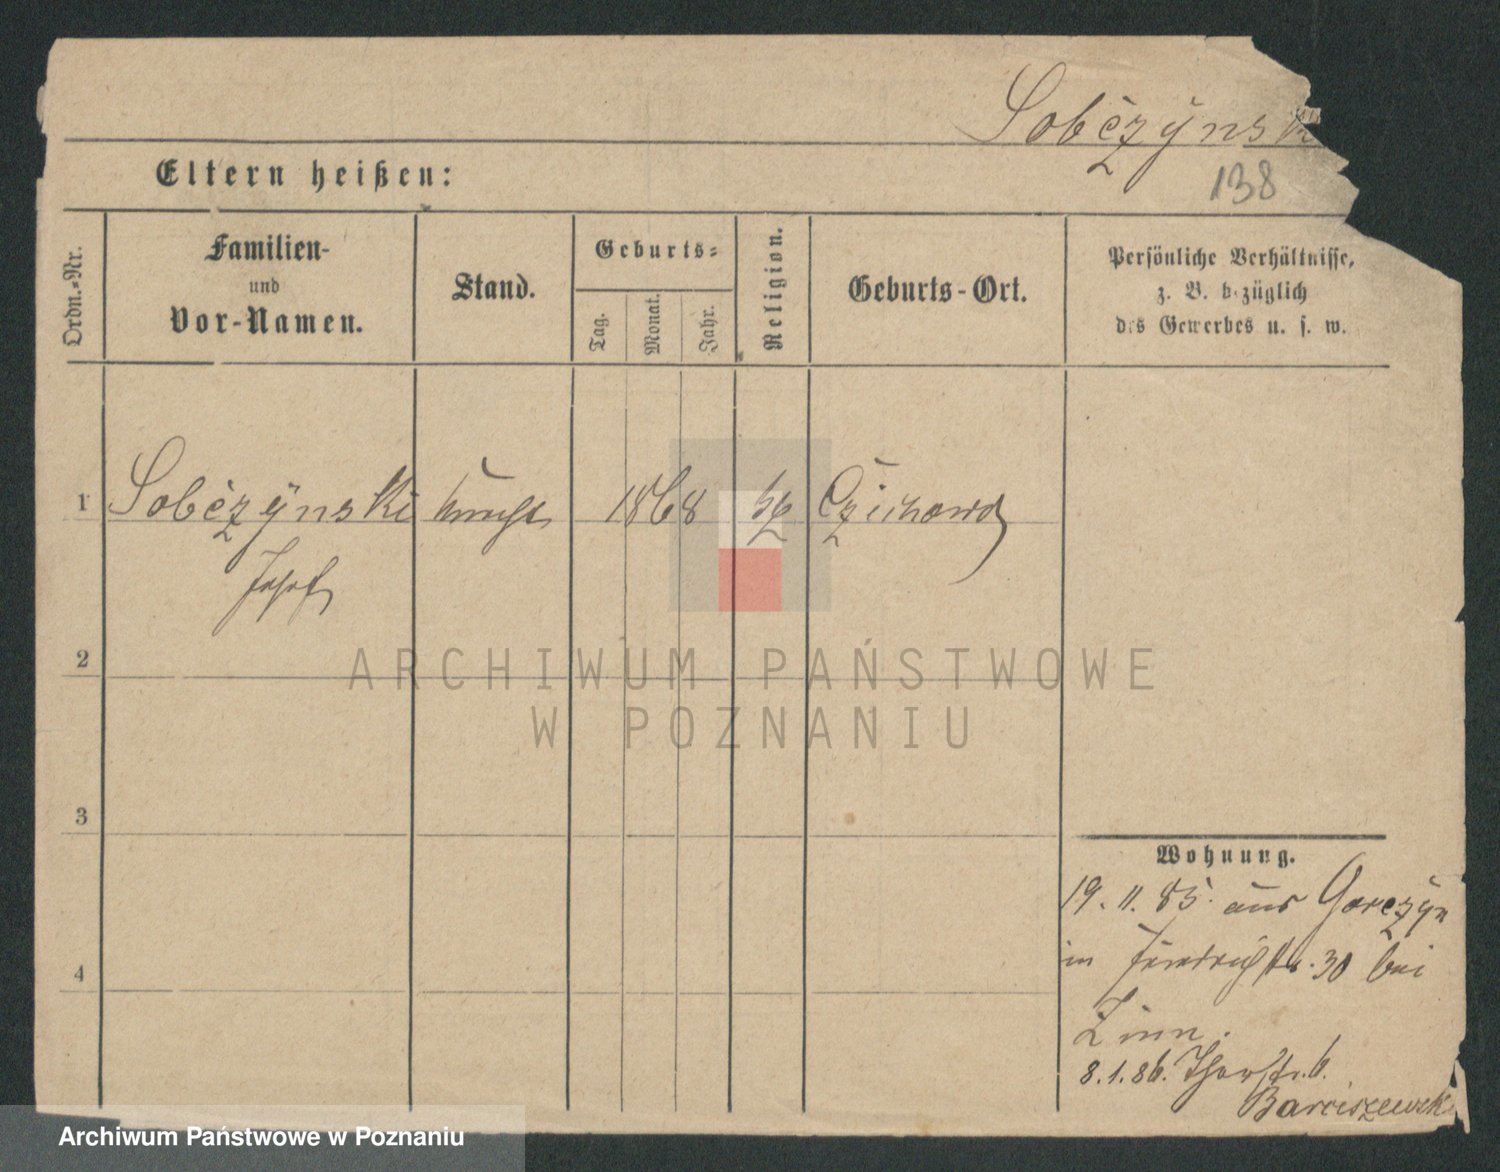 Sobczynsk
138
Eltern heißen:
Ordn.-Nr.
Familien-
und
Vor-Namen.
Stand.
Geburts-
Tag.
Monat.
Jahr.
Religion.
Geburts-Ort.
Persönliche Verhältnisse,
z. B. bezüglich
des Gewerbes u. s. w.
1 Sobczynski 1868
Josef
2
3
4
Wohnung.
19. 11. 85. aus Gorczyn
in Friedrichstr. 30 bei
Zinn.
8.1.86. Thorstr. 6.
Barciszewski
ARCHIWUM PAŃSTWOWE
W POZNANIU
Archiwum Państwowe w Poznaniu